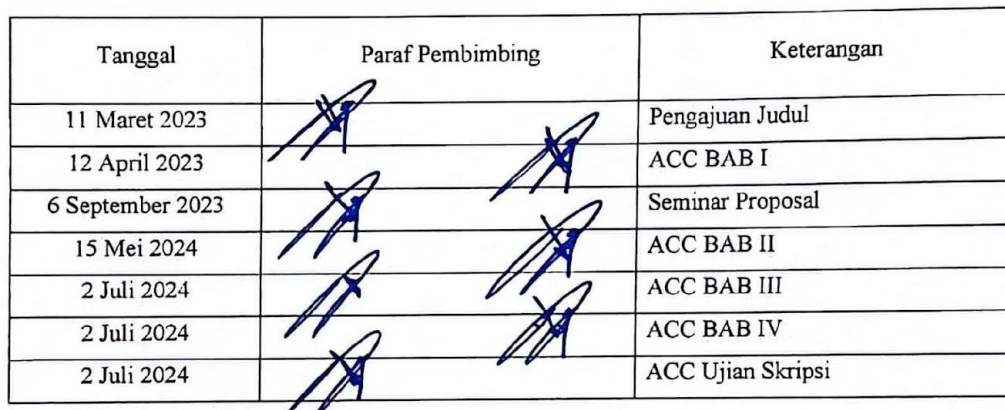 Tanggal Paraf Pembimbing Keterangan
11 Maret 2023 Pengajuan Judul
12 April 2023 ACC BAB I
6 September 2023 Seminar Proposal
15 Mei 2024 ACC BAB II
2 Juli 2024 ACC BAB III
2 Juli 2024 ACC BAB IV
2 Juli 2024 ACC Ujian Skripsi